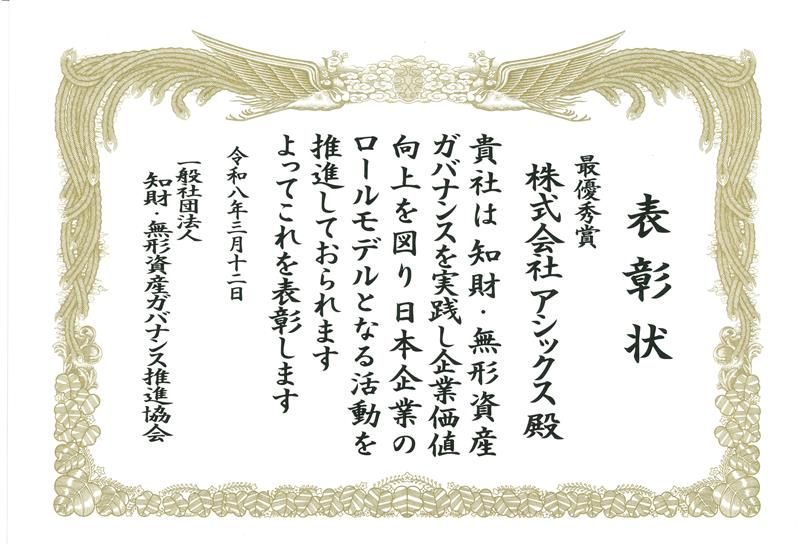 表彰状
最優秀賞
株式会社 アシックス 殿
貴社は 知財・無形資産
ガバナンスを実践し企業価値
向上を図り 日本企業の
ロールモデルとなる活動を
推進しておられます
よってこれを表彰します
令和八年三月十二日
一般社団法人
知財・無形資産ガバナンス推進協会